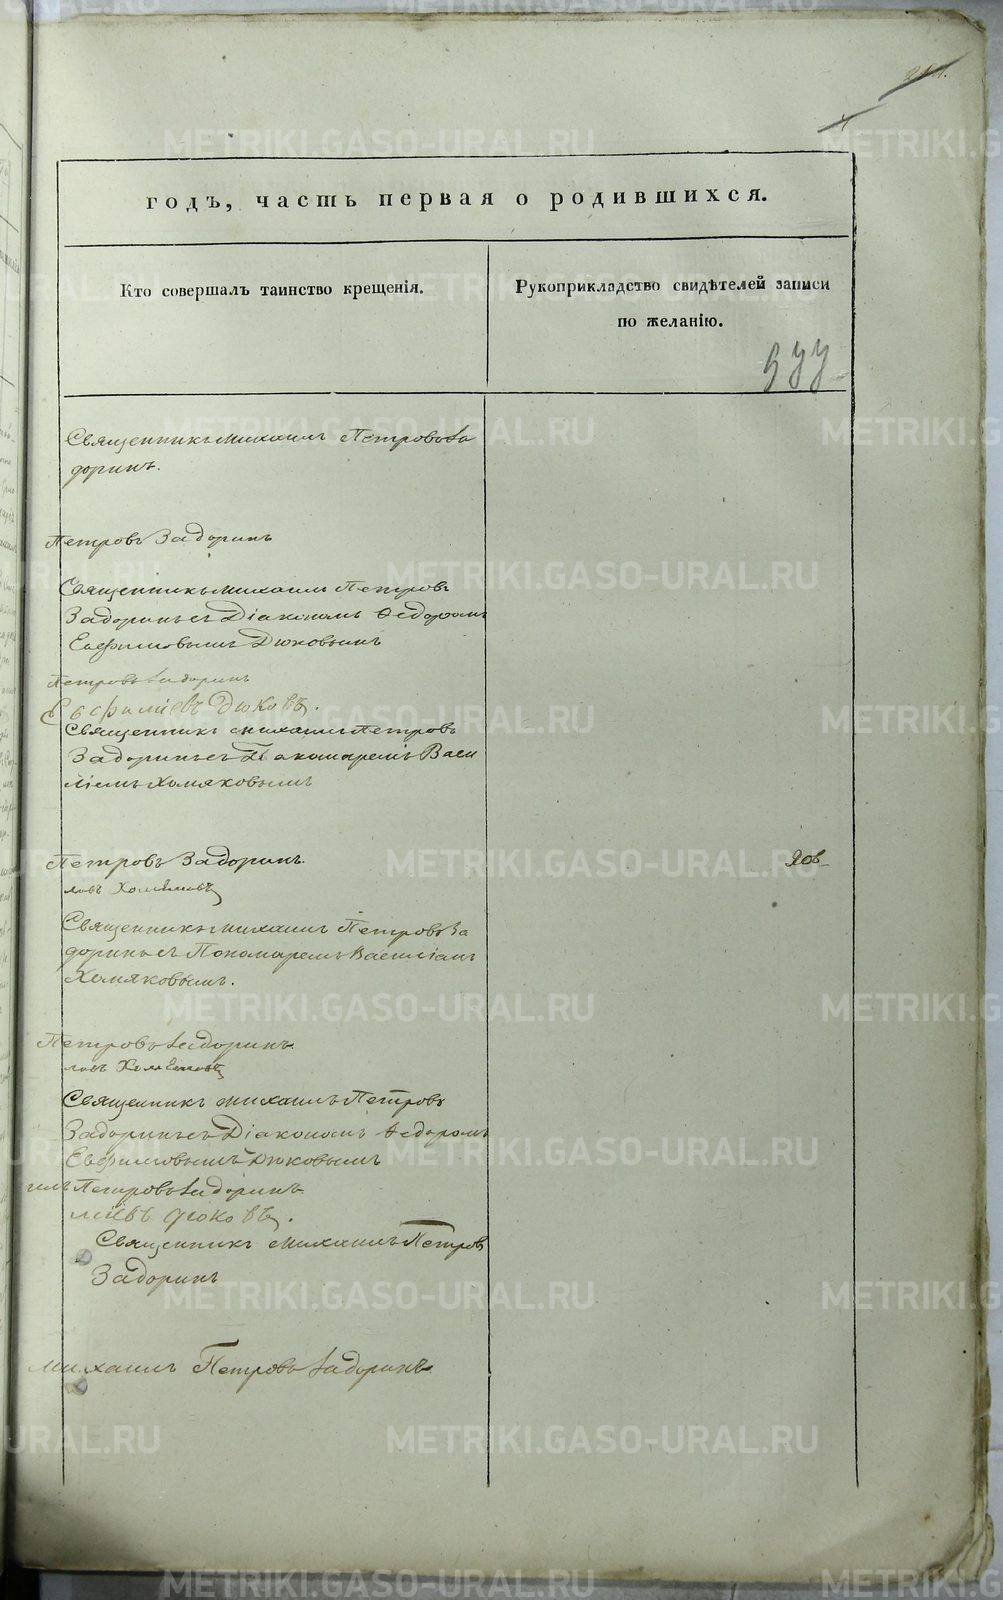 годъ, часть первая о родившихся.
Кто совершалъ таинство крещенія.
Рукоприкладство свидѣтелей записи
по желанію.
Священникъ Михаилъ Петровъ За
доринъ.
Петровъ Задоринъ
Священникъ Михаилъ Петровъ
Задоринъ съ Діакономъ Ѳедоромъ
Евфимовымъ Дюковымъ
Петровъ Задоринъ
Евфиміевъ Дюковъ.
Священникъ Михаилъ Петровъ
Задоринъ съ Пономаремъ Васи
ліемъ Хомяковымъ
Петровъ Задоринъ.
ловъ Хомяковъ
Священникъ Михаилъ Петровъ За
доринъ съ Пономаремъ Василіемъ
Хомяковымъ.
Петровъ Задоринъ
ловъ Хомяковъ
Священникъ Михаилъ Петровъ
Задоринъ съ Діакономъ Ѳедоромъ
Евфимовымъ Дюковымъ
Петровъ Задоринъ
міевъ Дюковъ.
Священникъ Михаилъ Петровъ
Задоринъ
Михаилъ Петровъ Задоринъ
METRIKI.GASO-URAL.RU